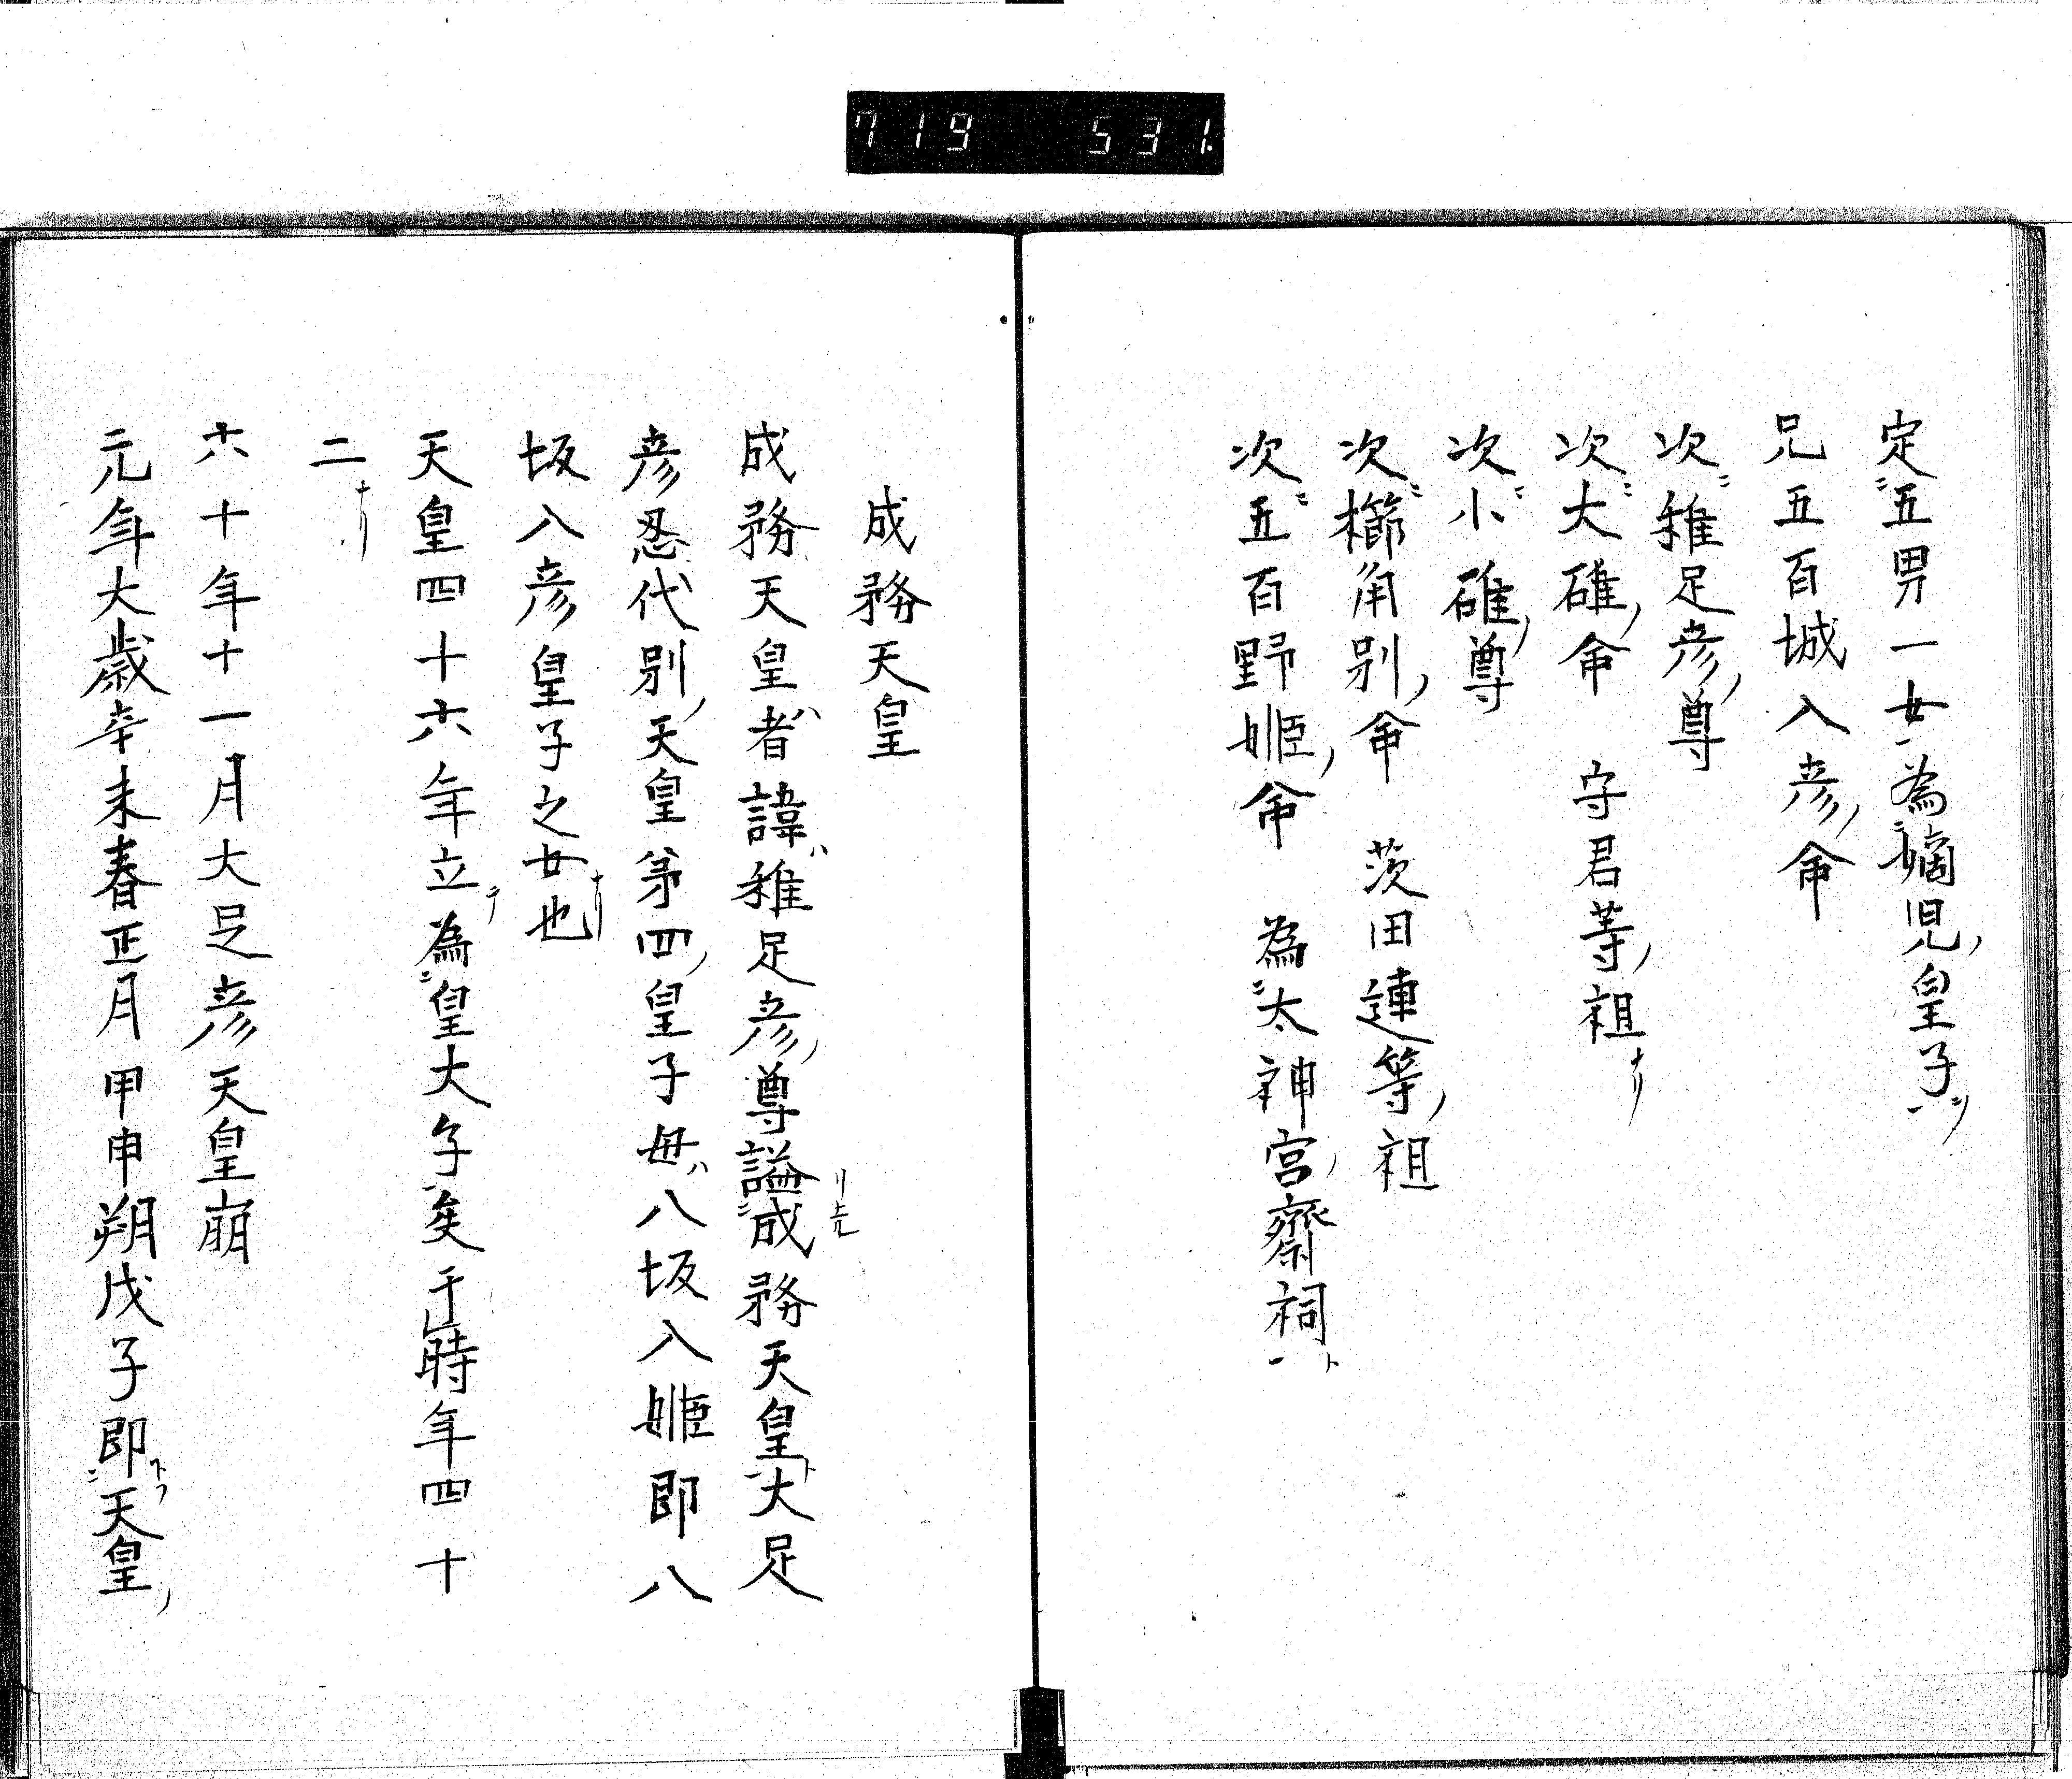 719 531
定五男一女為嫡児皇子
兄五百城入彦命
次稚足彦尊
次大碓命 守君等祖ナリ
次小碓尊
次櫛角別命 茨田連等祖
次五百野姫命 為太神宮齋祠
成務天皇
成務天皇者諱稚足彦尊謚成務天皇大足
彦忍代別天皇苐四皇子母八坂入姫即八
坂入彦皇子之女也
天皇四十六年立為皇大子矣于時年四十
二ナリ
六十年十一月大足彦天皇崩
元年大歳辛未春正月甲申朔戊子即天皇